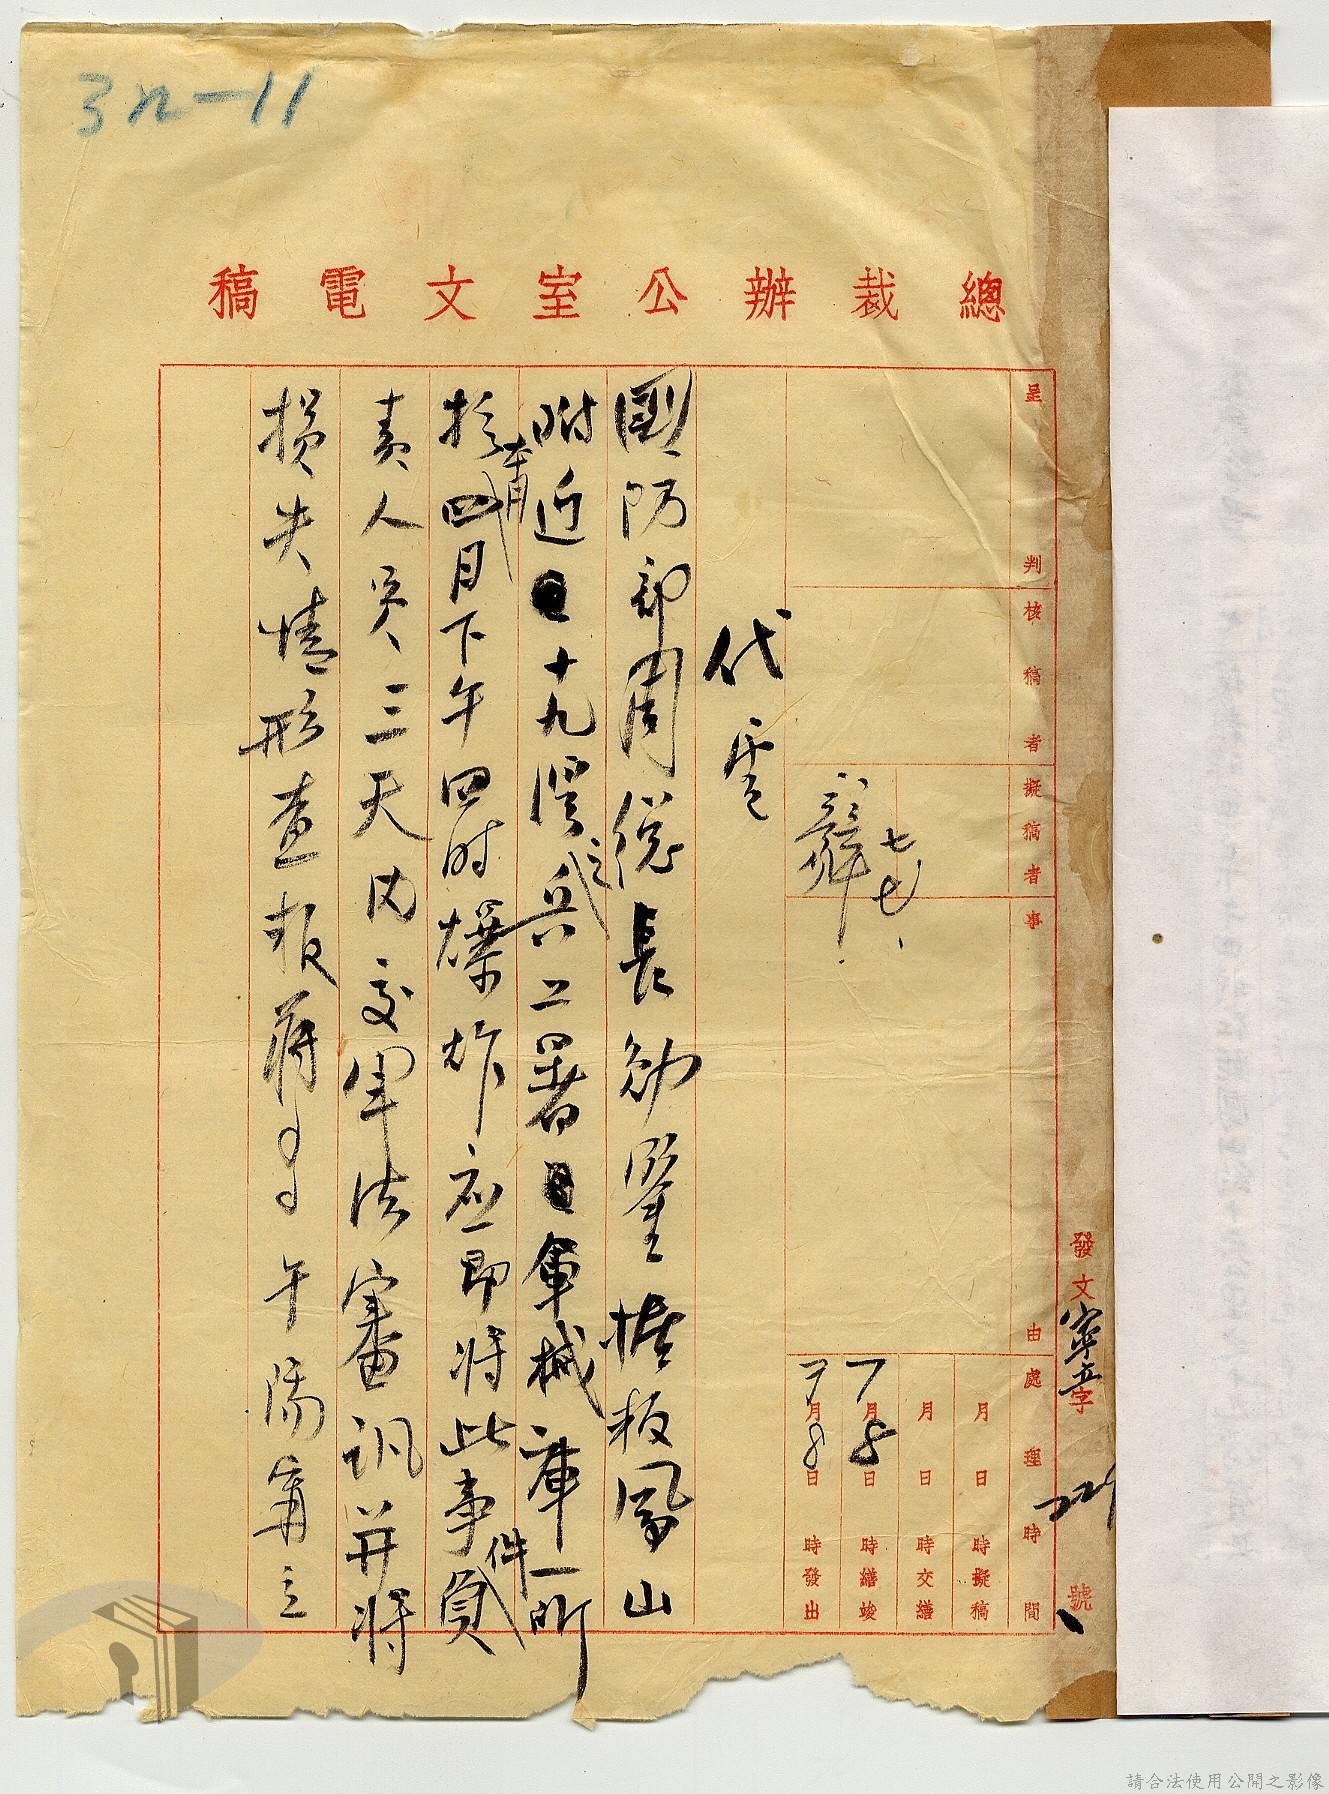 32-11
總裁辦公室文電稿
呈判
核稿者
擬稿者
事由
處理時間
月日時擬稿
月日時交繕
7月8日時繕竣
7月8日時發出
發文寧立字229號
七七
代電
國防部周總長勛鑒據報鳳山
附近十九溪之兵工署軍械庫一所
於本月四日下午四時爆炸應即將此事件負
責人員三天內交軍法審訊并將
損失情形查報蔣中午陽甯立
請合法使用公開之影像